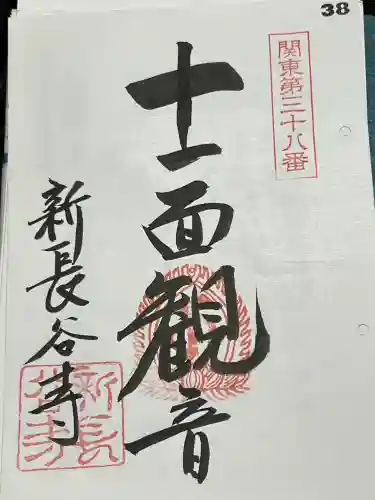 38
関東第三十八番
十一面観音
新長谷寺
新長谷寺